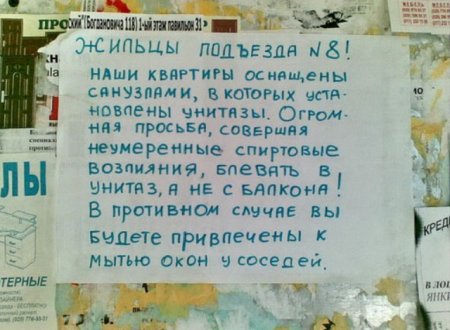 ПРО
ский (Богдановича 118) 1-ый этаж павильон 31
ЖИЛЬЦЫ ПОДЪЕЗДА N8!
НАШИ КВАРТИРЫ ОСНАЩЕНЫ
САНУЗЛАМИ, В КОТОРЫХ УСТА-
НОВЛЕНЫ УНИТАЗЫ. ОГРОМ-
НАЯ ПРОСЬБА, СОВЕРШАЯ
НЕУМЕРЕННЫЕ СПИРТОВЫЕ
ВОЗЛИЯНИЯ, БЛЕВАТЬ В
УНИТАЗ, А НЕ С БАЛКОНА!
В ПРОТИВНОМ СЛУЧАЕ ВЫ
БУДЕТЕ ПРИВЛЕЧЕНЫ К
МЫТЬЮ ОКОН У СОСЕДЕЙ.
ЛЫ
ТЕРНЫЕ
КРЕД